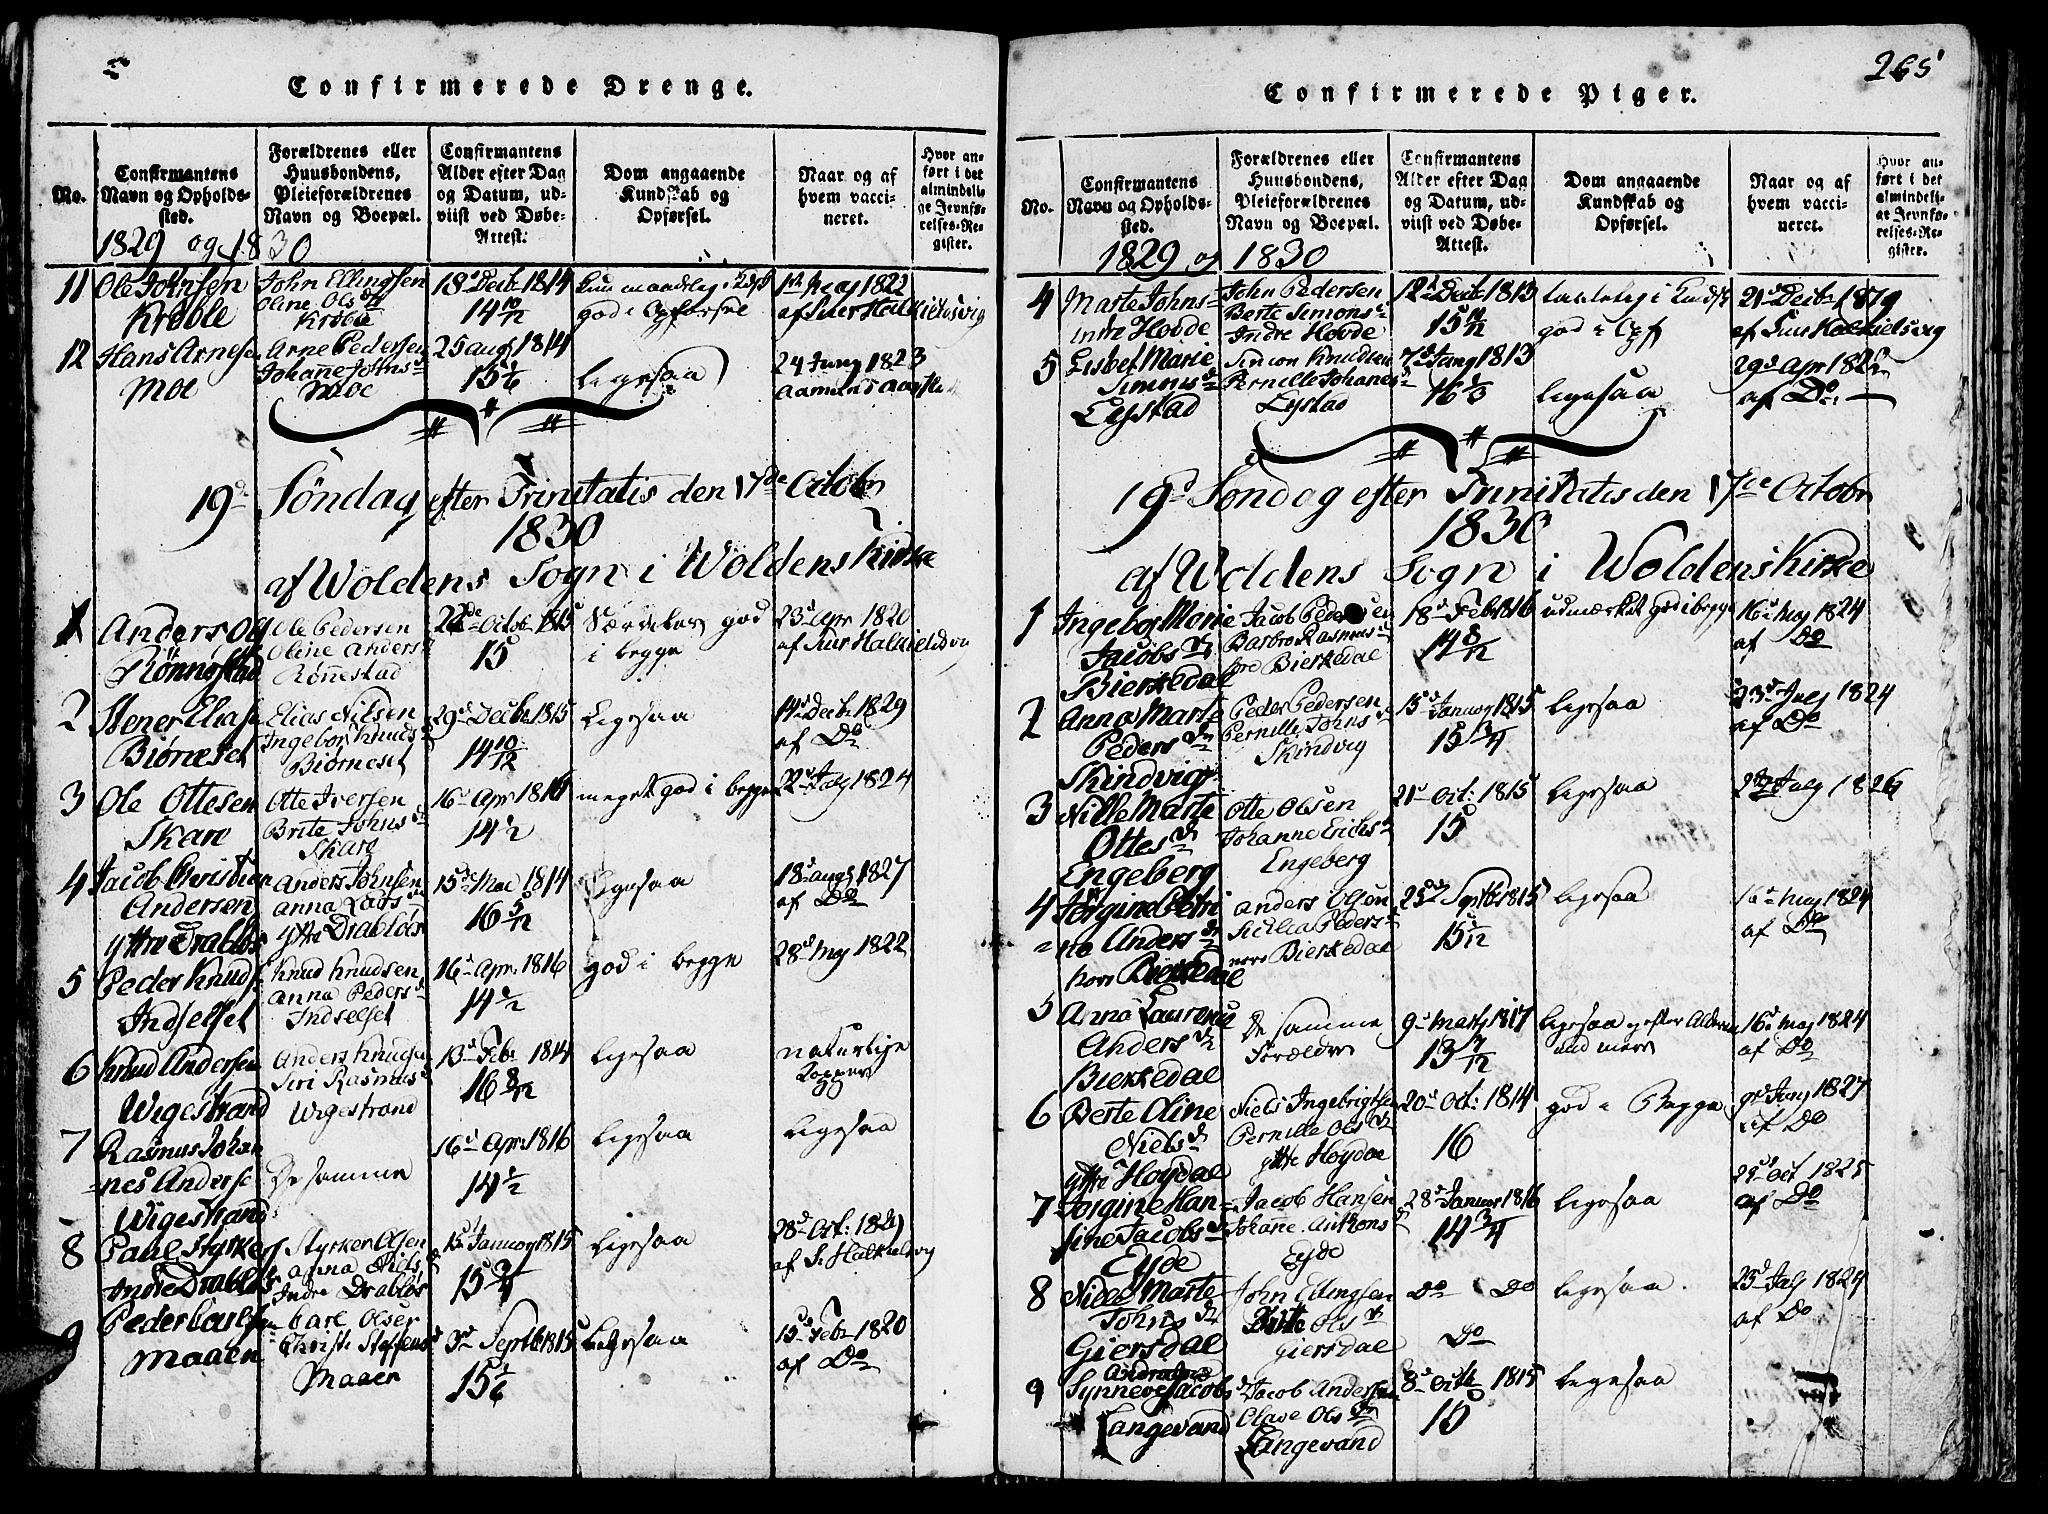 Confirmerede Drenge.
No.
Confirmantens
Navn og Opholds-
sted.
Forældrenes eller
Huusbondens,
Pleieforældrenes
Navn og Boepæl.
Confirmantens
Alder efter Dag
og Datum, ud-
viist ved Døbe-
Attest.
Dom angaaende
Kundskab og
Opførsel.
Naar og af
hvem vacci-
neret.
Hvor an-
ført i det
almindeli-
ge Jevnfø-
relses-Re-
gister.
1829 og 1830
11 Ole Johnsen
Krøble
John Ellingsen
Oline Olsdr
Krøble
18d Decbr 1814
14 10/12
god i Opførsel
1st May 1822
12 Hans Arnesen
Moe
Arne Pedersen
Johane Johnsdr
Moe
25 aug 1814
15 1/6
ligesaa
24 Juny 1823
19de Søndag efter Trinitatis den 17de Octobr
1830
af Woldens Sogn i Woldens Kirke
1 Anders Ols
Rønnestad
Ole Pedersen
Oline Andersdr
Rønnestad
22de Octob 1815
15
Særdeles god
i begge
23d Apr 1820
2 Stener Elias
Biørneset
Elias Nilsen
Ingebor Knudsdr
Biørneset
29d Decbr 1815
14 10/12
Ligesaa
14d Decb 1829
af Do
3 Ole Ottesen
Skare
Otte Iversen
Brite Johnsdr
Skare
16d Apr 1816
14 1/2
meget god i begge
22d July 1824
4 Jacob Christian
Andersen
yttre Drabløs
Anders Johnsen
Anna Larsdr
yttre Drabløs
15de Mai 1814
16 5/12
Ligesaa
18d augs 1827
af Do
5 Peder Knuds
Indselset
Knud Knudsen
Anna Pedersdr
Indselset
16d Apr 1816
14 1/2
god i begge
28d May 1822
6 Knud Andersen
Wigestrand
Anders Knudsen
Siri Rasmusdr
Wigestrand
13d Febr 1814
16 8/12
ligesaa
naturlige
Kopper
7 Rasmus Johan
=nes Anderse
Wigestrand
De samme
16d Apr 1816
14 1/2
ligesaa
ligesaa
8 Paul Styrkers
Indre Drabløs
Styrker Olsen
Anna Nielsdr
Indre Drabløs
15d Januay 1815
15 3/4
ligesaa
28d Oct: 1829
9 Peder Carlsen
Maaen
Carl Olsen
Christi Steffensdr
Maaen
3d Septb 1815
15 1/6
Ligesaa
15de Febr 1820
af Do
265
Confirmerede Piger.
No.
Confirmantens
Navn og Opholds-
sted.
Forældrenes eller
Huusbondens,
Pleieforældrenes
Navn og Boepæl.
Confirmantens
Alder efter Dag
og Datum, ud-
viist ved Døbe-
Attest.
Dom angaaende
Kundskab og
Opførsel.
Naar og af
hvem vacci-
neret.
Hvor an-
ført i det
almindeli-
ge Jevnfø-
relses-Re-
gister.
1829 og 1830
4 Marte Johns=
indre Hovde
John Pedersen
Berte Simonsdr
Indre Hovde
12d Decbr 1813
15 10/12
god i Opf
21d Decbr 1819
5 Lisbet Marie
Simonsdr
Eystad
Simon Knudsen
Pernille Johanesdr
Eystad
7d Juny 1813
16 1/3
ligesaa
29d Apr
af Do.
19d Søndag efter Trinitatis den 17de Octobr
1830
af Woldens Sogn i Woldens Kirke
1 Ingebor Marie
Jacobsdr
Bierkedal
Jacob Pedersen
Barbro Rasmusdr
Bierkedal
18d Febr 1816
14 8/12
udmærket god i begge
16d May 1824
af Do
2 Anna Marte
Pedersdr
Skindvig
Peder Pedersen
Pernille Johnsdr
Skindvig
15d Januay 1815
15 3/4
ligesaa
23d July 1824
af Do
3 Nille Marte
Ottesdr
Engeberg
Otte Olsen
Johanne Erichsdr
Engeberg
21d Oct: 1815
15
ligesaa
July 1826
4 Jørgine Petri
=na Andersdr
nore Bierkedal
Anders Olsen
Sicilia Pedersdr
nore Bierkedal
25de Septb 1815
15 1/12
ligesaa
16d May 1824
af Do
5 Anna Laurense
Andersdr
Bierkedal
De samme
Forældre
9d Marty 1817
13 7/12
16d May 1824
af Do
6 Berte Oline
Nielsdr
yttre Høydal
Niels Ingebrigtsen
Pernille Olsdr
yttre Høydal
20d Oct: 1814
16
god i Begge
Juny 1827
af Do
7 Jørgine Han=
sine Jacobsdr
Eyde
Jacob Hansen
Johanne Anthonsdr
Eyde
28d Januay 1816
14 3/4
ligesaa
Oct 1825
af Do
8 Nille Marte
Johnsdr
Giersdal
John Ellingsen
Britte Olsdr
Giersdal
Do Do
Do
ligesaa
23d July 1824
af Do
9 Synneve Jacobsdr
Langevand
Jacob Andersen
Olave Olsdr
Langevand
8d Octb 1815
15
ligesaa